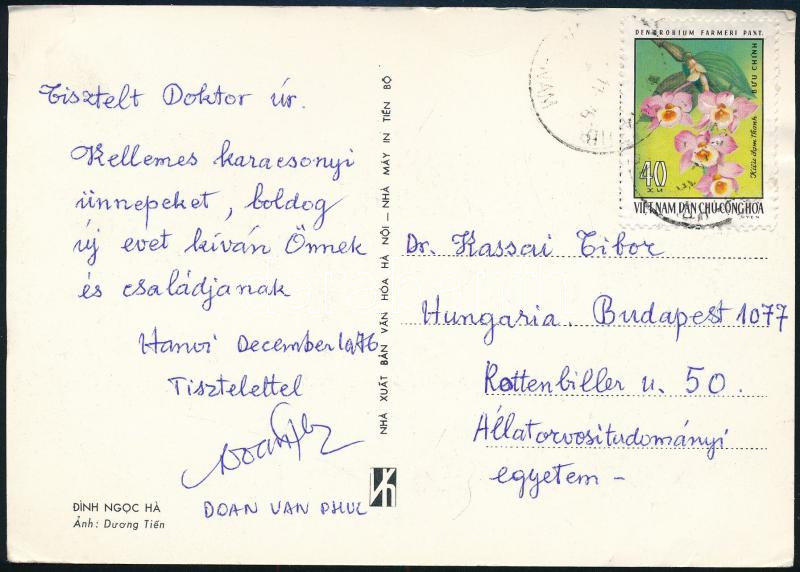 Tisztelt Doktor úr.
Kellemes karacsonyi
ünnepeket, boldog
új evet kíván Önnek
és családjanak
Hanoi December 1976
Tisztelettel
DOAN VAN PHUC
ĐÌNH NGỌC HÀ
Ảnh: Dương Tiến
NHÀ XUẤT BẢN VĂN HÓA HÀ NỘI — NHÀ MÁY IN TIẾN BỘ
DENDROBIUM FARMERI PAXT.
BƯU CHÍNH
Kiều diễm Thanh
40
XU
VIỆT-NAM DÂN CHỦ CỘNG HÒA
Dr. Kassai Tibor
Hungaria. Budapest 1077
Rottenbiller u. 50.
Állatorvositudományi
egyetem -